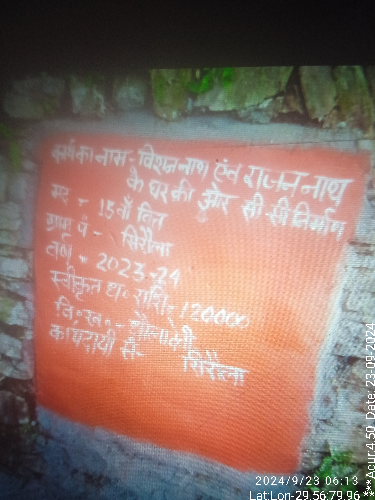 कार्य का नाम - विशन नाथ एंव राजन नाथ
के घर की ओर सी सी निर्माण
मद - 15 वाँ वित
ग्राम पं - सिरौला
वर्ष - 2023-24
स्वीकृत ध० राशि - 120000
वि० ख० -
सिरौला
2024/9/23 06:13
Lat Lon-29.56:79.96
***Acur:4.50 Date: 23-09-2024